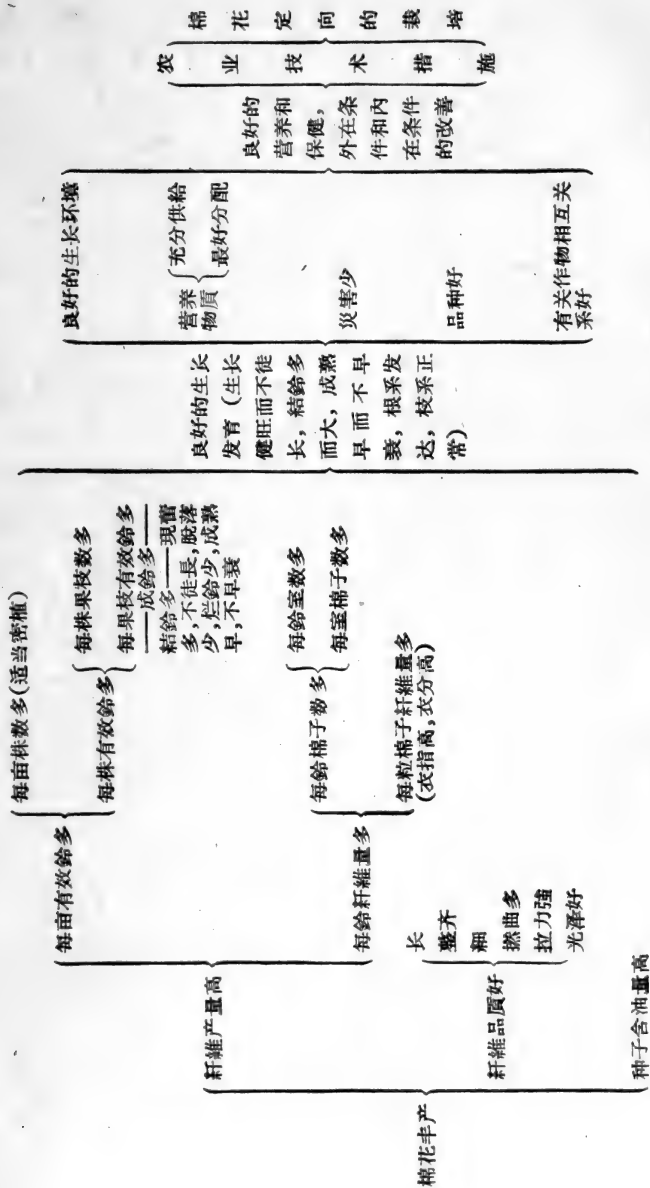 棉花丰产
纤維产量高
纤維品質好
种子含油量高
每亩有效鈴多
每鈴纤維量多
长
整齐
細
撚曲多
拉力強
光泽好
每亩株数多(适当密植)
每株有效鈴多
每鈴棉子数多
每粒棉子纤維量多
(衣指高,衣分高)
每株果枝数多
每果枝有效鈴多
——成鈴多——
結鈴多——現蕾
多,不徒長,脫落
少,烂鈴少,成熟
早,不早衰
每鈴室数多
每室棉子数多
良好的生长
发育(生长
健旺而不徒
长,結鈴多
而大,成熟
早而不早
衰,根系发
达,枝系正
常)
良好的生长环境
营养
物質
充分供給
最好分配
災害少
品种好
有关作物相互关
系好
良好的
营养和
保健,
外在条
件和內
在条件
的改善
农业技术措施
棉花定向的栽培